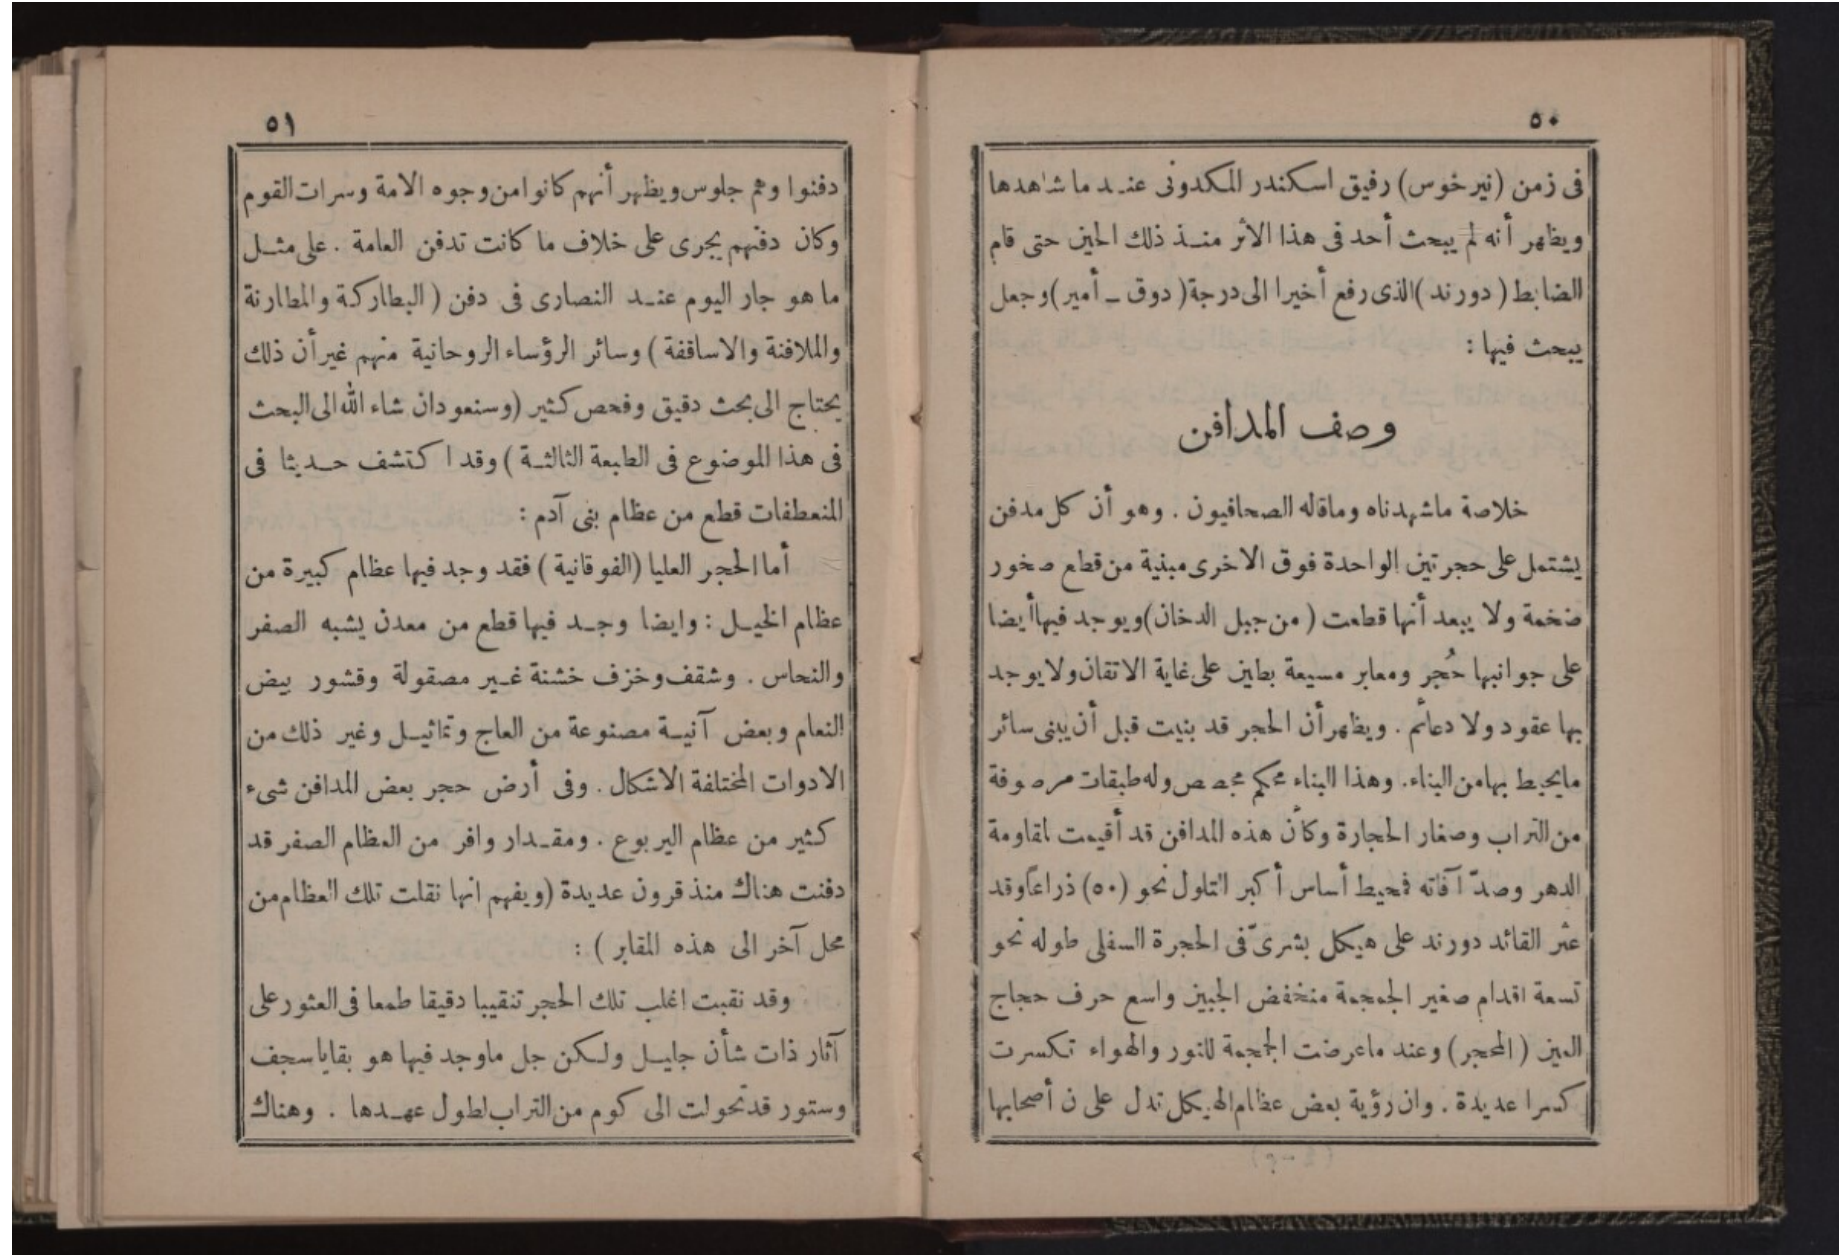 ٥٠
فى زمن (نيرخوس) رفيق اسكندر المكدونى عند ما شاهدها
ويظهر أنه لم يبحث أحد فى هذا الأثر منذ ذلك الحين حتى قام
الضابط (دورند) الذى رفع أخيرا الى درجة (دوق ــ أمير) وجعل
يبحث فيها :
وصف المدافن
خلاصة ماشهدناه وماقاله الصحافيون . وهو أن كل مدفن
يشتمل على حجرتين الواحدة فوق الاخرى مبنية من قطع صخور
ضخمة ولا يبعد أنها قطعت (من جبل الدخان) ويوجد فيها أيضا
على جوانبها حُجر ومعابر مسيعة بطين على غاية الاتقان ولا يوجد
بها عقود ولا دعائم . ويظهر أن الحجر قد بنيت قبل أن يبنى سائر
مايحيط بها من البناء . وهذا البناء محكم مجصص وله طبقات مرصوفة
من التراب وصغار الحجارة وكأن هذه المدافن قد أقيمت لمقاومة
الدهر وصدّ آفاته فمحيط أساس أكبر التلول نحو (٥٠) ذراعاً وقد
عثر القائد دورند على هيكل بشرىّ فى الحجرة السفلى طوله نحو
تسعة اقدام صغير الجمجمة منخفض الجبين واسع حرف حجاج
العين (المحجر) وعند ماعرضت الجمجمة للنور والهواء تكسرت
كسرا عديدة . وان رؤية بعض عظام الهيكل تدل على ن أصحابها
٥١
دفنوا وهم جلوس ويظهر أنهم كانوا من وجوه الامة وسرات القوم
وكان دفنهم يجرى على خلاف ما كانت تدفن العامة . على مثل
ما هو جار اليوم عند النصارى فى دفن (البطاركة والمطارنة
والملافنة والاساقفة) وسائر الرؤساء الروحانية منهم غير أن ذلك
يحتاج الى بحث دقيق وفحص كثير (وسنعود ان شاء الله الى البحث
فى هذا الموضوع فى الطبعة الثالثة) وقد اكتشف حديثا فى
المنعطفات قطع من عظام بنى آدم :
أما الحجر العليا (الفوقانية) فقد وجد فيها عظام كبيرة من
عظام الخيل : وايضا وجد فيها قطع من معدن يشبه الصفر
والنحاس . وشقف وخزف خشنة غير مصقولة وقشور بيض
النعام وبعض آنية مصنوعة من العاج وتماثيل وغير ذلك من
الادوات المختلفة الاشكال . وفى أرض حجر بعض المدافن شىء
كثير من عظام اليربوع . ومقدار وافر من العظام الصفر قد
دفنت هناك منذ قرون عديدة (ويفهم انها نقلت تلك العظام من
محل آخر الى هذه المقابر) :
وقد نقبت اغلب تلك الحجر تنقيبا دقيقا طمعا فى العثور على
آثار ذات شأن جليل ولكن جل ماوجد فيها هو بقايا سجف
وستور قد تحولت الى كوم من التراب لطول عهدها . وهناك